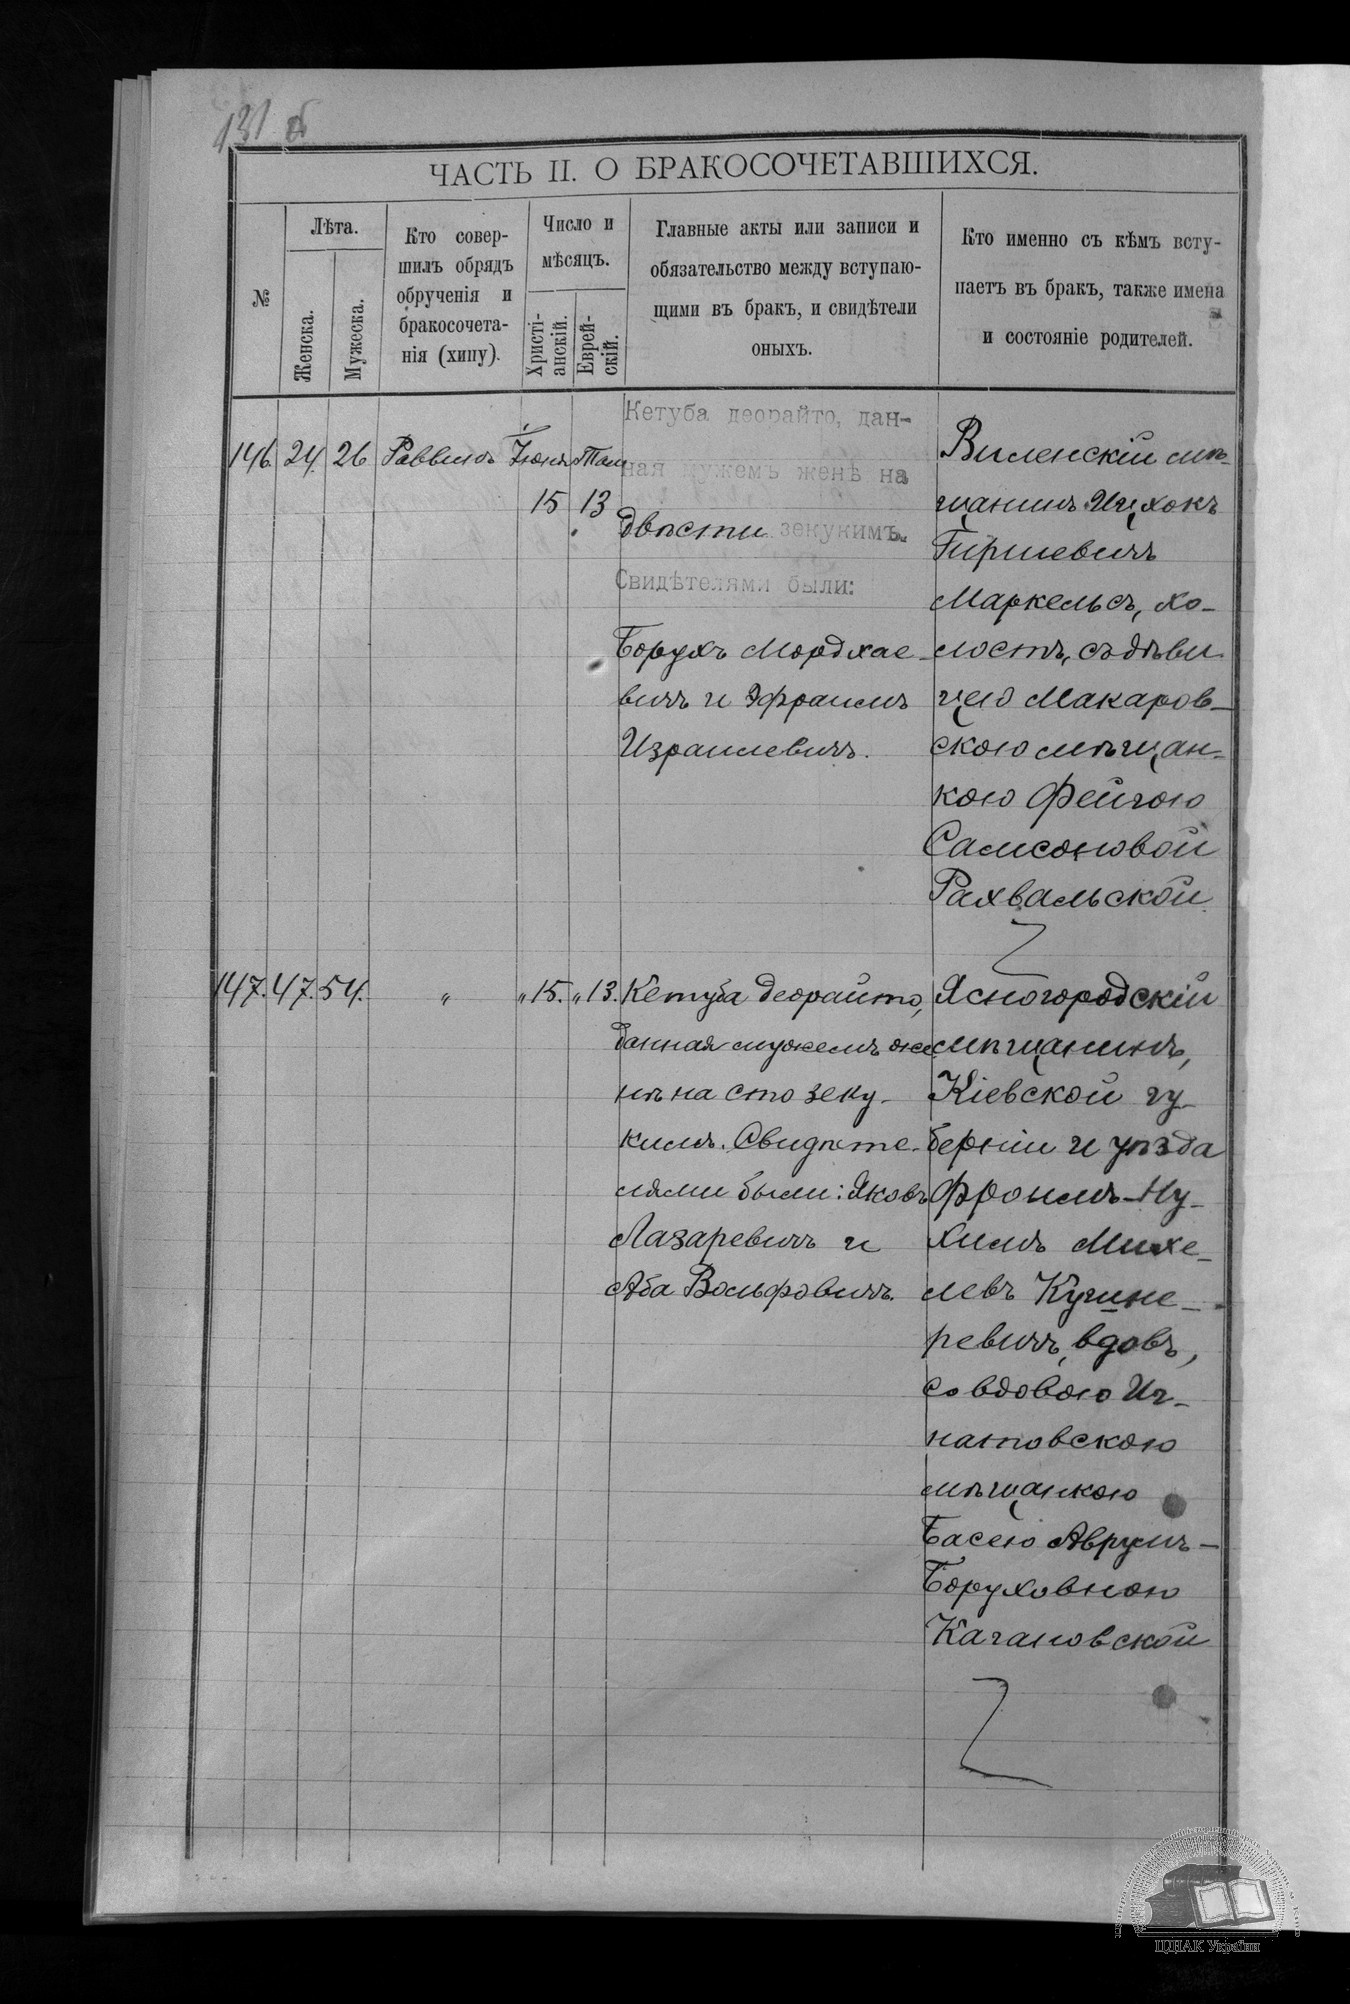 131 б
ЧАСТЬ II. О БРАКОСОЧЕТАВШИХСЯ.
№
Лѣта.
Женска.
Мужеска.
Кто совер-
шилъ обрядъ
обрученія и
бракосочета-
нія (хипу).
Число и
мѣсяцъ.
Христі-
анскій.
Еврей-
скій.
Главные акты или записи и
обязательство между вступаю-
щими въ бракъ, и свидѣтели
оныхъ.
Кто именно съ кѣмъ всту-
паетъ въ бракъ, также имена
и состояніе родителей.
146. 24. 26 Раввинъ Іюня Там
15 13
Кетуба деорайто, дан-
ная мужемъ женѣ на
двѣсти зекукимъ.
Свидѣтелями были:
Борухъ Мордхае-
вичъ и Эфраимъ
Израилевичъ.
Виленскій мѣ-
щанинъ Ицхокъ
Гиршевичъ
Маркельсъ, хо-
лостъ, съ дѣви
цею Макаров-
скою мѣщан-
кою Фейгою
Самсоновой
Рахвальской
147. 47. 54. " " 15. " 13.
Кетуба деорайто,
данная мужемъ же
нѣ на сто зеку-
кимъ. Свидѣте-
лями были: Яковъ
Лазаревичъ и
Аба Вольфовичъ.
Ясногородскій
мѣщанинъ,
Кіевской гу-
берніи и уѣзда
Фроимъ-Ну-
химъ Михе-
левъ Кушне-
ревичъ, вдовъ,
со вдовою Иг-
натовскою
мѣщанкою
Басею Аврумъ-
Боруховною
Кагановской
ЦДІАК України